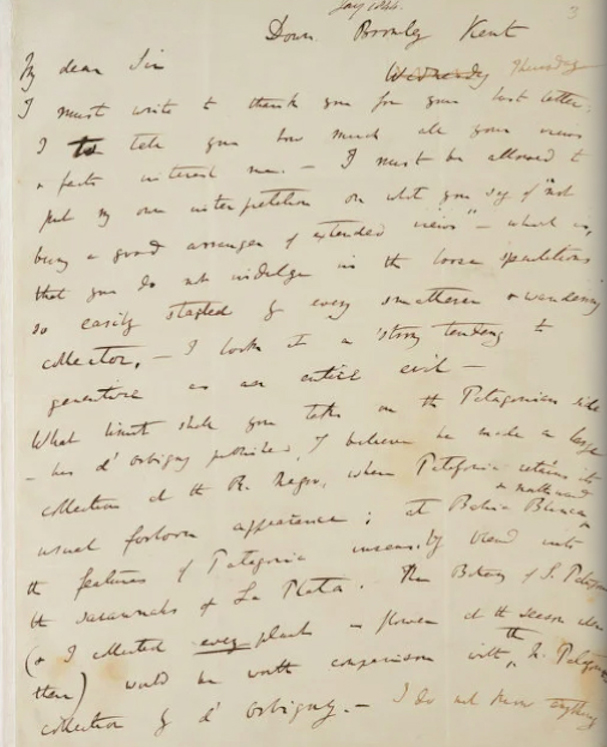 Jany 1844.
3
Down. Bromley Kent
My dear Sir Wednesday Thursday
I must write to thank you for your last letter;
I to tell you how much all your views
& facts interest me. — I must be allowed to
put my own interpretation on what you say of "not
being a good arranger of extended views" — which is,
that you do not indulge in the loose speculations
so easily started by every smatterer & wandering
collector. — I look at a strong tendency to
generalize as an entire evil —
What limit shall you take on the Patagonian side
— has d'Orbigny published, I believe he made a large
collection at the R. Negro, where Patagonia retains its
usual forlorn appearance; at Bahia Blanca & northward
the features of Patagonia insensibly blend into
the savannahs of La Plata. The Botany of S. Patagonia
(& I collected every plant in flower at the season when
there) would be worth comparison with the N. Patagonian
collection by d'Orbigny. — I do not know anything